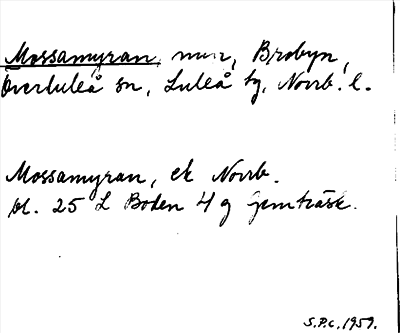 Mossamyran, myr, Brobyn,
Överluleå sn, Luleå tg, Norrb. l.
Mossamyran, ek Norrb.
bl. 25 L Boden 4 g Gemträsk.
S.P.c. 1959.